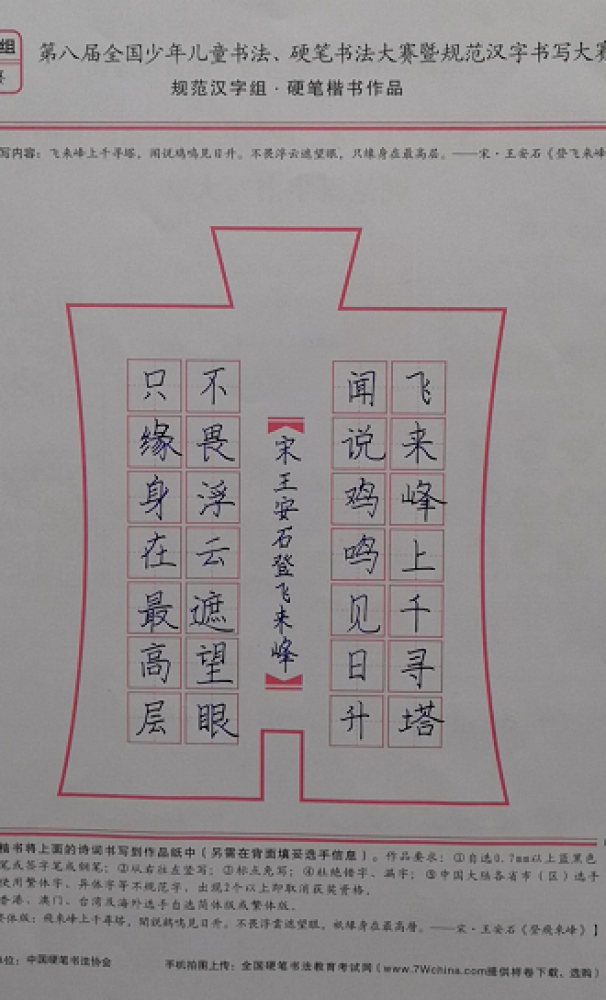 组
第八届全国少年儿童书法、硬笔书法大赛暨规范汉字书写大赛
规范汉字组·硬笔楷书作品
写内容：飞来峰上千寻塔，闻说鸡鸣见日升。不畏浮云遮望眼，只缘身在最高层。——宋·王安石《登飞来峰
飞来峰上千寻塔
闻说鸡鸣见日升
宋王安石登飞来峰
不畏浮云遮望眼
只缘身在最高层
楷书将上面的诗词书写到作品纸中（另需在背面填妥选手信息）。作品要求：①自选0.7mm以上蓝黑色
笔或签字笔或钢笔；②从右往左竖写；③标点免写；④杜绝错字、漏字；⑤中国大陆各省市（区）选手
使用繁体字、异体字等不规范字，出现2个以上即取消获奖资格。
香港、澳门、台湾及海外选手自选简体版或繁体版。
繁体版：飛來峰上千尋塔，聞說鷄鳴見日升。不畏浮雲遮望眼，衹緣身在最高層。——宋·王安石《登飛來峰》】
单位：中国硬笔书法协会
手机拍图上传：全国硬笔书法教育考试网（www.7Wchina.com提供样卷下载、选购）